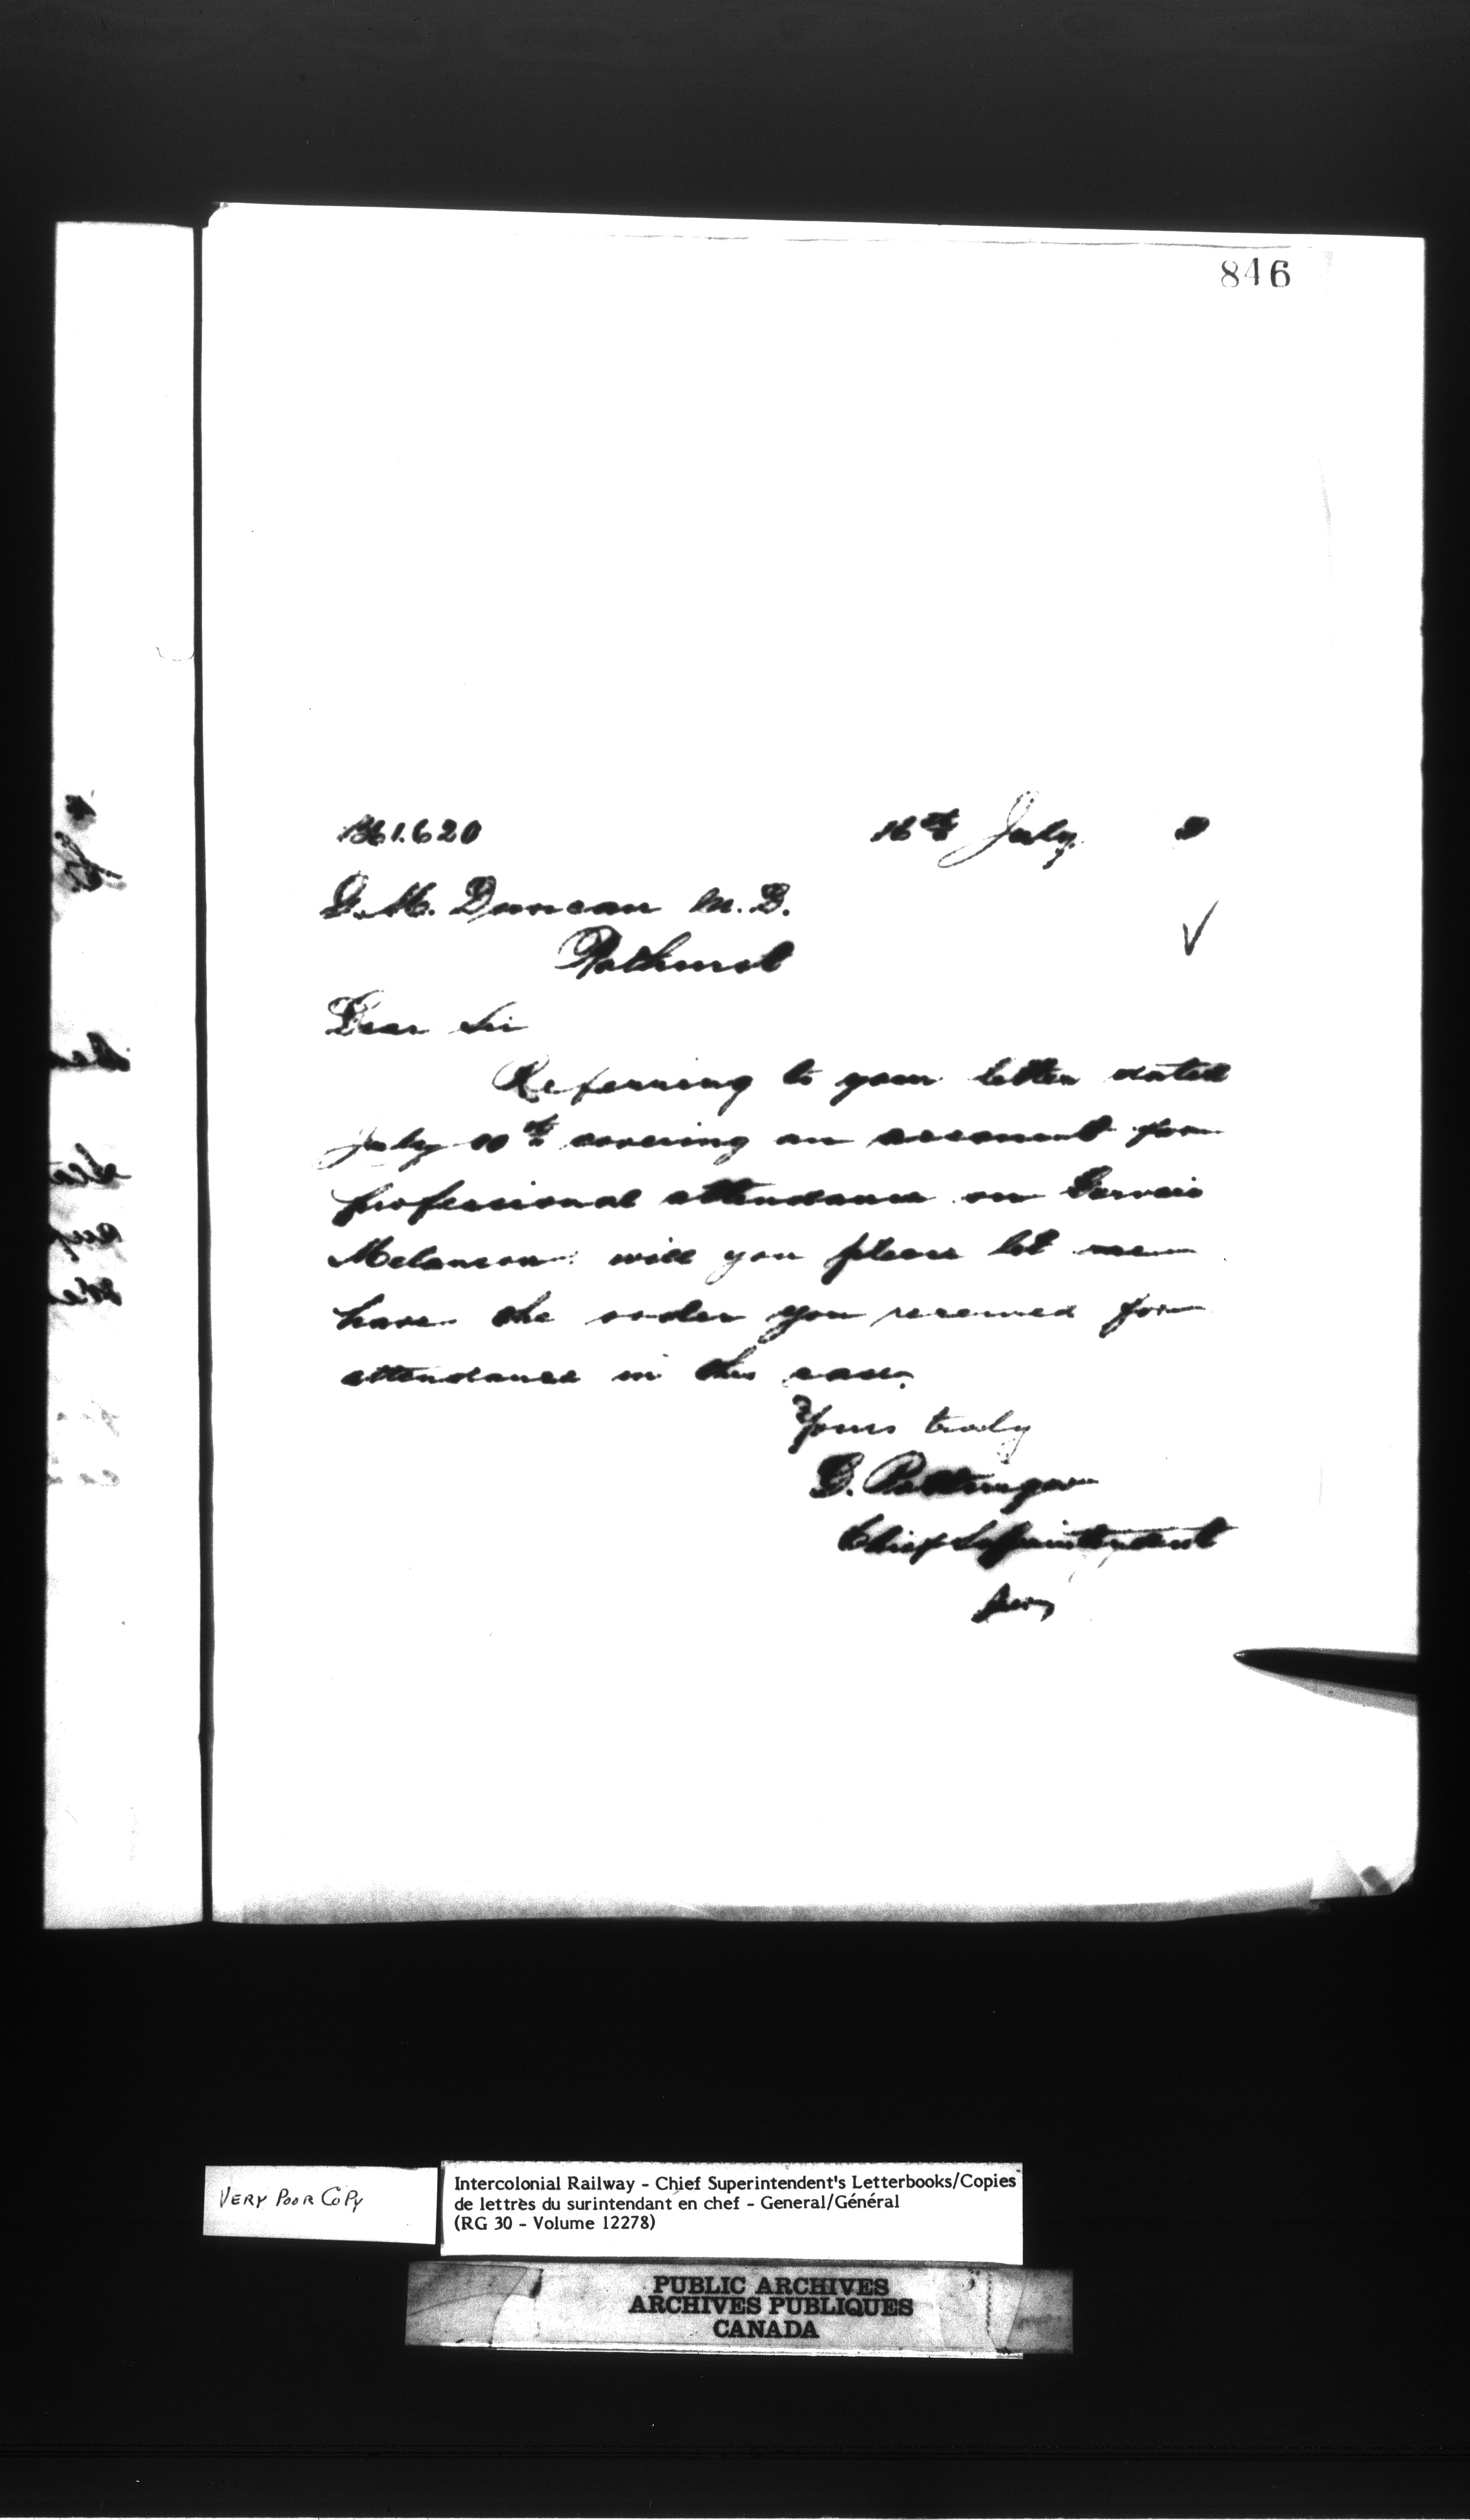 846
16th July
G. M. Duncan M. D.
Bathurst
Dear Sir
Referring to your letter dated
July 10th covering an account for
professional attendance on Gervais
Melancon: will you please let me
have the order you received for
attendance in this case.
Yours truly
D. Pottinger
Chief Superintendent
VERY POOR COPY
Intercolonial Railway - Chief Superintendent's Letterbooks/Copies
de lettres du surintendant en chef - General/Général
(RG 30 - Volume 12278)
PUBLIC ARCHIVES
ARCHIVES PUBLIQUES
CANADA